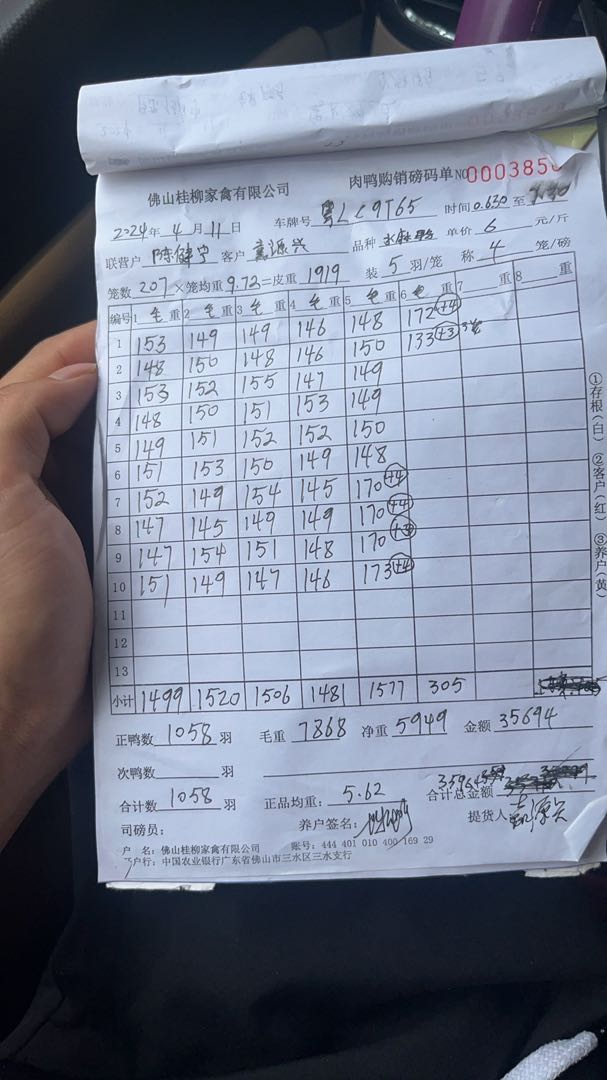 佛山桂柳家禽有限公司 肉鸭购销磅码单 NO 000385
2024年4月11日 车牌号 粤LC9T65 时间 0.630 至
联营户 陈健宁 客户 袁源兴 品种 单价 6 元/斤
笼数 207 ×笼均重 9.72 =皮重 1919 装 5 羽/笼 称 4 笼/磅
编号 1 毛 重 2 毛 重 3 毛 重 4 毛 重 5 毛 重 6 毛 重 7 重 8 重
1 153 149 149 146 148 172 +4
2 148 150 148 146 150 133 +3
3 153 152 155 147 149
4 148 150 151 153 149
5 149 151 152 152 150
6 151 153 150 149 148
7 152 149 154 145 170 +4
8 147 145 149 149 170 +4
9 147 154 151 148 170 +3
10 151 149 147 146 173 +4
11
12
13
小计 1499 1520 1506 1481 1577 305
正鸭数 1058 羽 毛重 7868 净重 5949 金额 35694
次鸭数 羽
合计数 1058 羽 正品均重: 5.62 合计总金额
司磅员: 养户签名: 提货人
户 名: 佛山桂柳家禽有限公司 账号: 444 401 010 400 169 29
户行: 中国农业银行广东省佛山市三水区三水支行
①存根(白) ②客户(红) ③养户(黄)